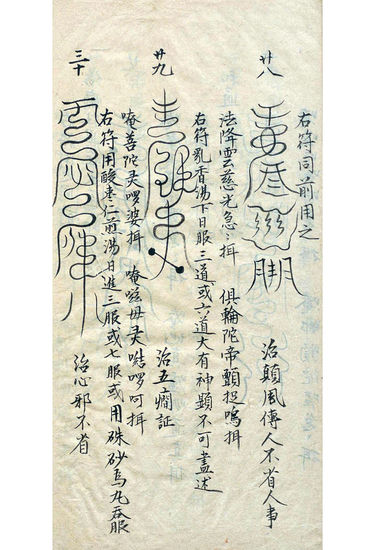 右符同前用之
廿八
治顛風傳人不省人事
法降雲慈光急〻揖 俱輪陀帝顫捉嗚揖
右符乳香湯下日服三道或六道大有神顕不可盡述
廿九
治五癇証
唵善陀灵啰婆揖 唵嗞毋灵嚛啰呵揖
右符用酸枣仁煎湯日進三服或七服或用硃砂為丸吞服
三十
治心邪不省